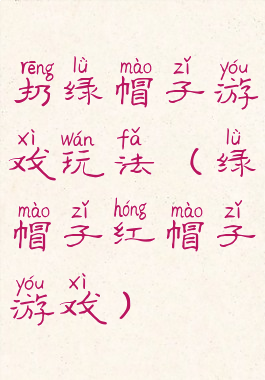 rēng lǜ mào zǐ yóu
扔绿帽子游
xì wán fǎ lǜ
戏玩法(绿
mào zǐ hóng mào zǐ
帽子红帽子
yóu xì
游戏)